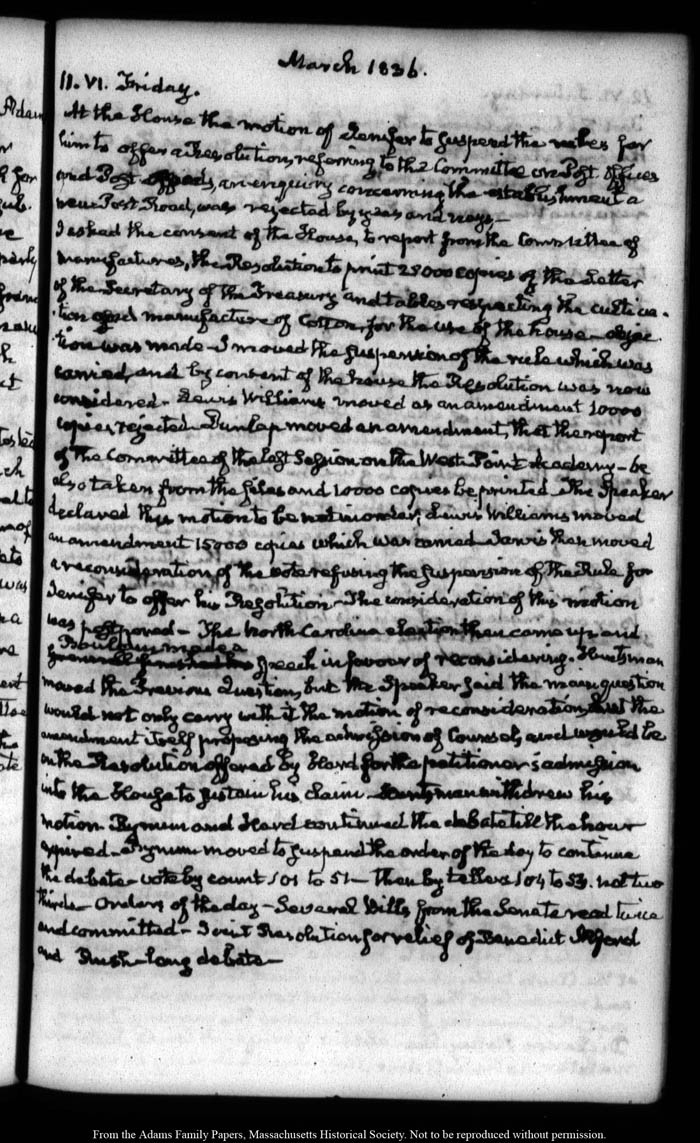 March 1836.
11. VI. Friday.
At the House the motion of Jenifer to suspend the rules for
him to offer a Resolution, referring to the Committee on Post Offices
and Post Roads, an enquiry concerning the establishment a
new Post Road, was rejected by yeas and nays—
I asked the consent of the House, to report from the Committee of
Manufactures, the Resolution to print 25000 copies of the Letter
of the Secretary of the Treasury and tables respecting the cultiva-
tion and manufacture of Cotton, for the use of the house— objec-
tion was made— I moved the suspension of the rule which was
carried, and by consent of the house the Resolution was now
considered— Lewis Williams moved as an amendment 10000
copies, rejected— Dunlap moved an amendment, that the report
of the Committee of the last Session, on the West-Point Academy— be
also taken from the files and 10000 copies be printed. The Speaker
declared this motion to be not in order; Lewis Williams moved
an amendment 15000 copies which was carried— Jarvis then moved
a reconsideration of the vote refusing the suspension of the Rule for
Jenifer to offer his Resolution— The consideration of this motion
was postponed— The North Carolina election then came up and
Bouldin made a
speech in favour of reconsidering. Huntsman
moved the Previous Question, but the Speaker said the main question
would not only carry with it the motion of reconsideration, but the
amendment itself proposing the admission of Counsel, and would be
on the Resolution offered by Hard for the petitioner's admission
into the House to sustain his claim— Huntsman withdrew his
motion— Bynum and Hard continued the debate till the hour
expired— Bynum moved to suspend the order of the day to continue
the debate— vote by count 101 to 51— then by tellers 104 to 53. not two
thirds— Orders of the day— Several Bills from the Senate read twice
and committed— Joint Resolution for relief of Benedict Alford
and Brush— long debate—
From the Adams Family Papers, Massachusetts Historical Society. Not to be reproduced without permission.